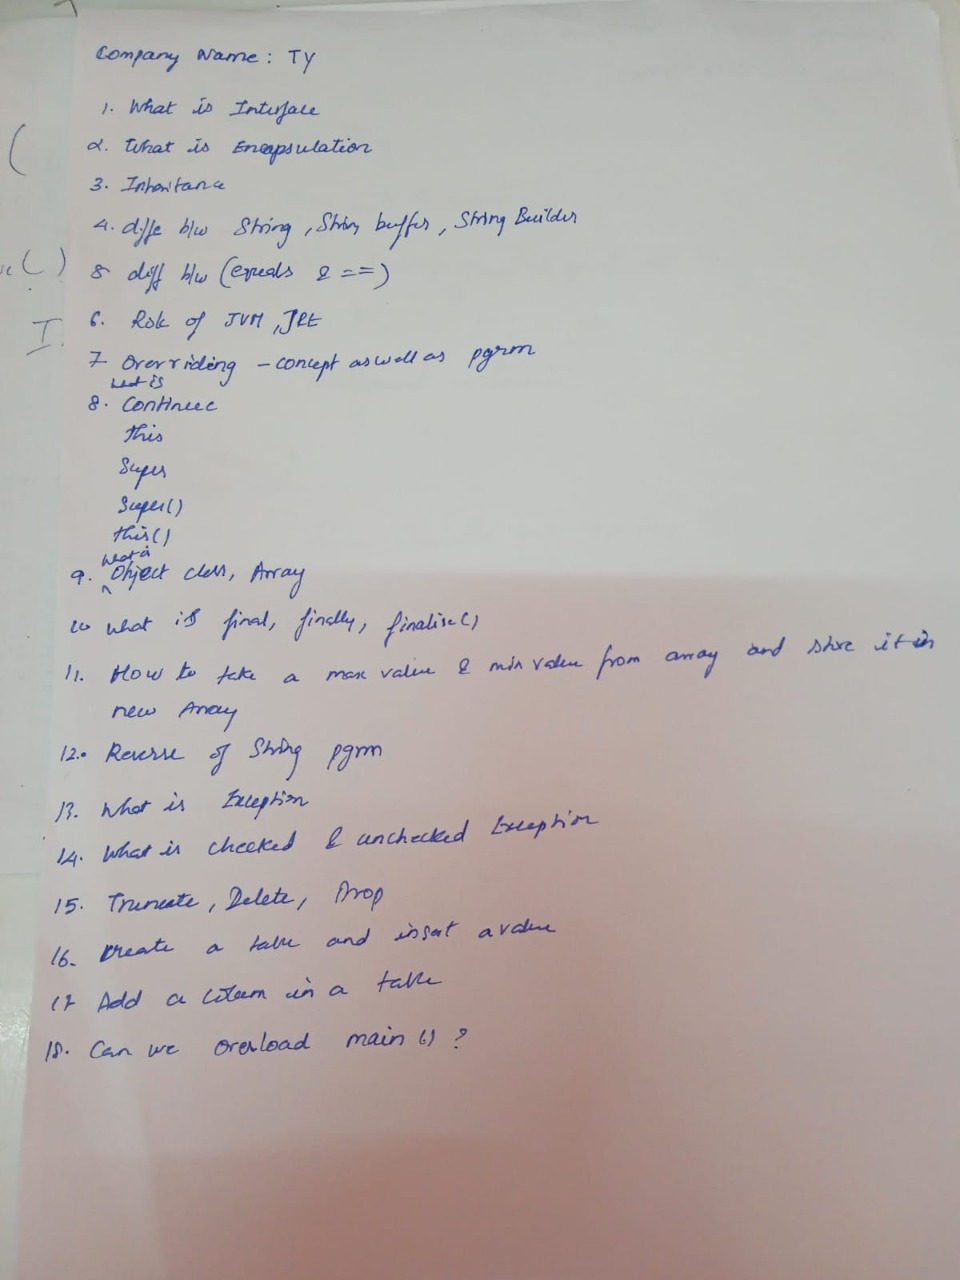 Company Name : TY
1. What is Interface
2. What is Encapsulation
3. Inheritance
4. diffe b/w String , String buffer , String Builder
5 diff b/w (equals & ==)
6. Role of JVM , JRE
7 Overriding - concept as well as pgrm
what is
8. Continue
this
Super
Super()
this()
what is
9. Object class, Array
10 what is final, finally, finalise()
11. How to take a max value & min value from array and store it in
new Array
12. Reverse of String pgrm
13. What is Exception
14. What is checked & unchecked Exception
15. Truncate , Delete , Drop
16. Create a table and insert a value
17 Add a column in a table
18. Can we overload main () ?